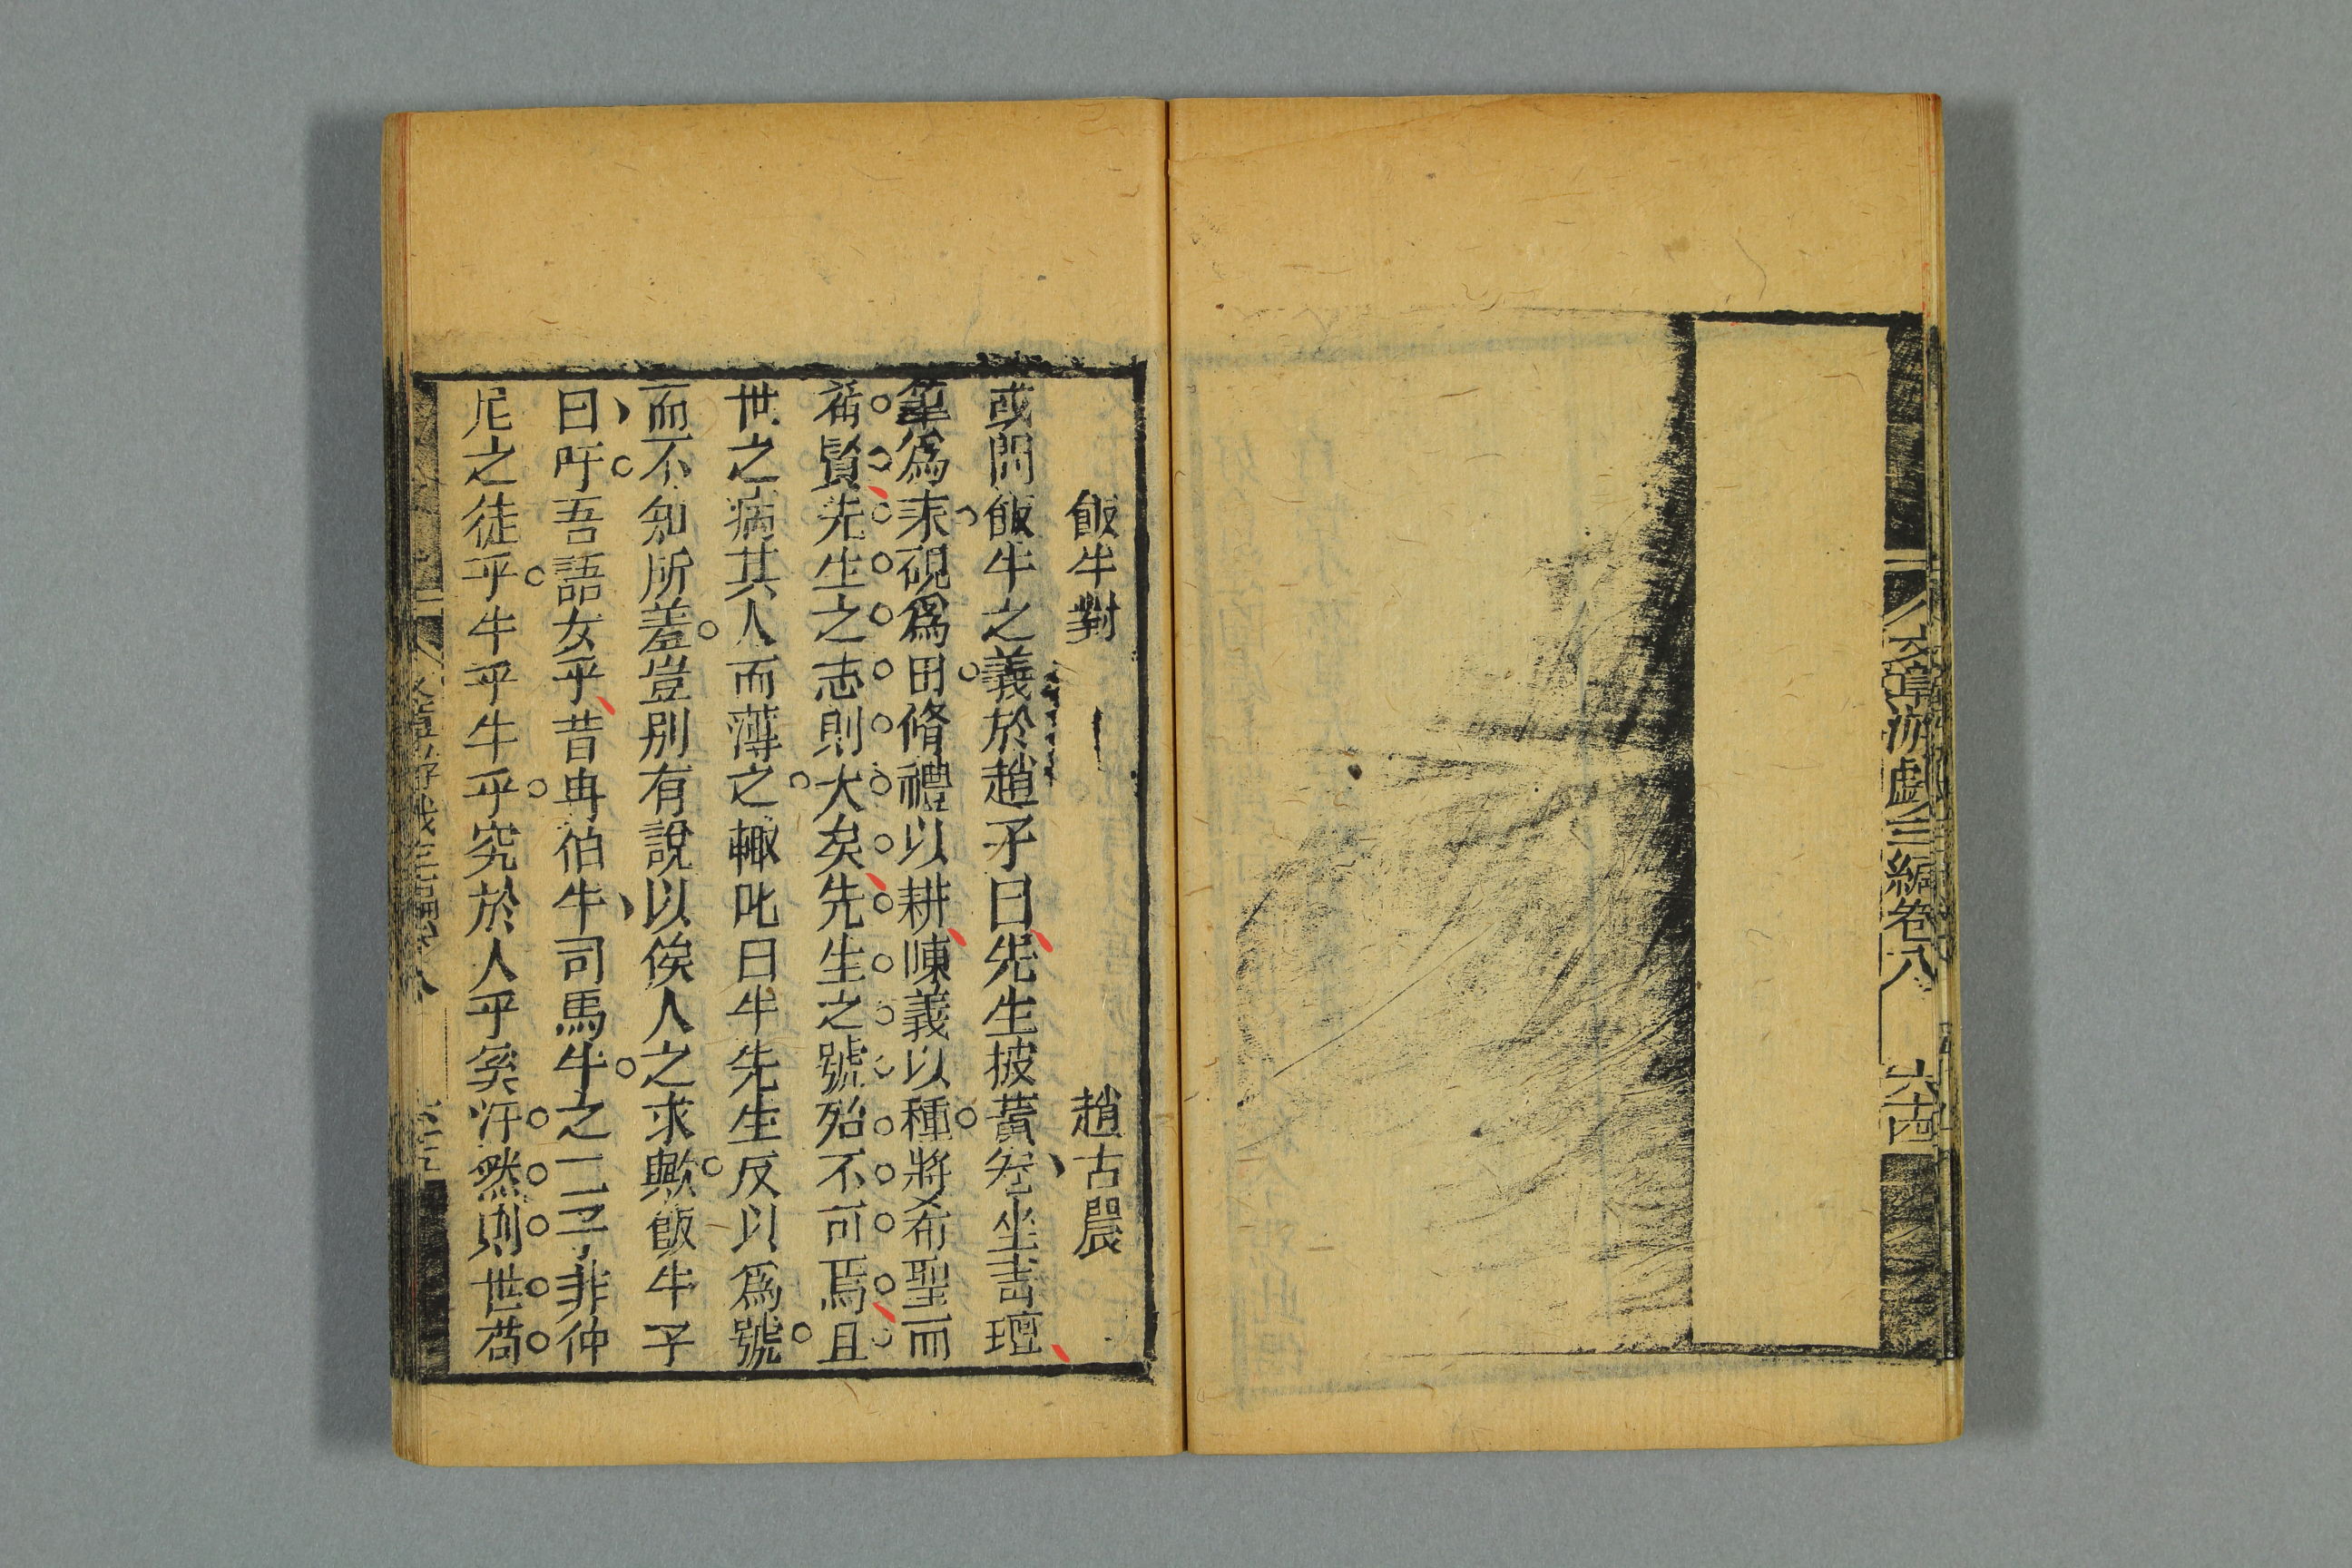 文章游戲三編卷八 六十四
飯牛對 趙古農
或問飯牛之義於趙矛曰先生披黃卷坐書壇
筆為耒硯為田脩禮以耕陳義以種將希聖而
希賢先生之志則大矣先生之號殆不可焉且
世之病其人而薄之輙叱曰牛先生反以為號
而不知所羞豈別有說以俟人之求歟飯牛子
曰吁吾語女乎昔冉伯牛司馬牛之二子非仲
尼之徒乎牛乎牛乎究於人乎奚汙然則世苟
文章游戲三編卷八 六十五